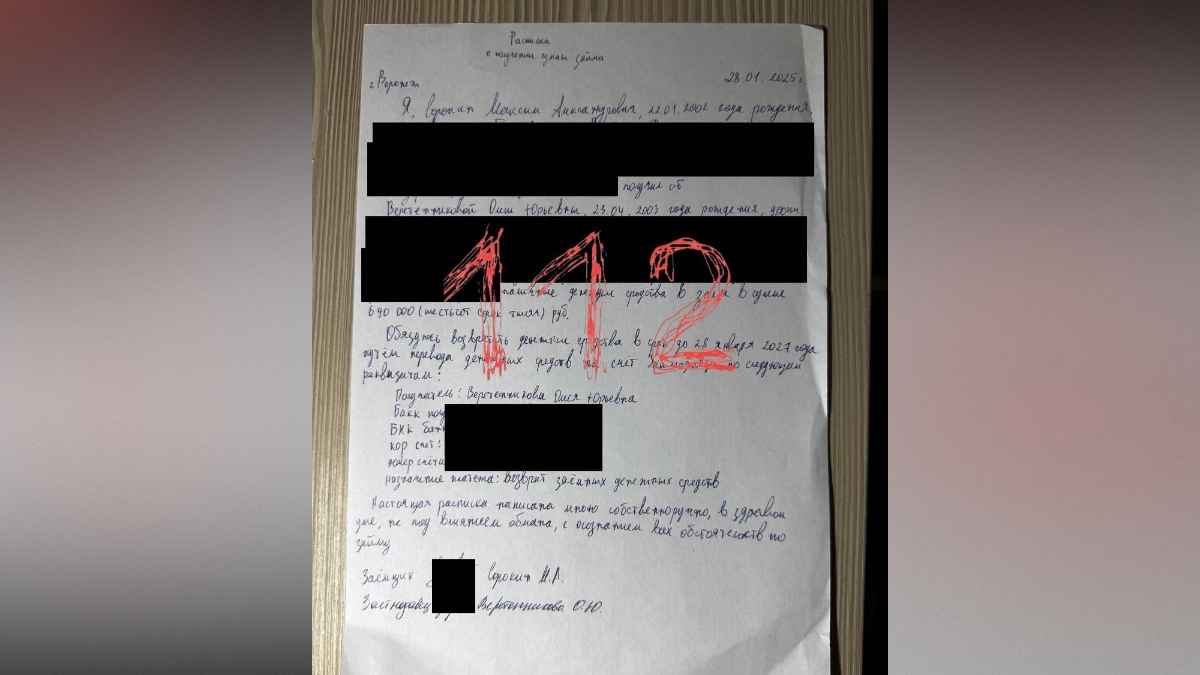 Расписка
о получении суммы займа
г. Воронеж 28.01.2025 г.
Я, Сорокин Максим Александрович, 22.01.2002 года рождения,
получил от
Веретенниковой Олеси Юрьевны, 23.04.2003 года рождения,
денежные средства в займ в сумме
640 000 (шестьсот сорок тысяч) руб.
Обязуюсь возвратить денежные средства в срок до 28 января 2027 года
путём перевода денежных средств на счёт по следующим
реквизитам:
Получатель: Веретенникова Олеся Юрьевна
Банк
БИК
кор счёт:
номер счёта
назначение платежа: Возврат заёмных денежных средств
Настоящая расписка написана мною собственноручно, в здравом
уме, не под влиянием обмана, с осознанием всех обстоятельств по
займу
Заёмщик Сорокин М.А.
Веретенникова О.Ю.
112